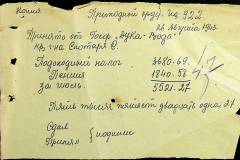 Копия Приходный ордер № 922
26 августа 1943
Принято от Госф. "Мука-Вода"
Подоходный налог 3680-69.
Пенсия 1840-58
за июль 5521.27
Пять тысяч пятьсот двадцать одна 27
Сдал
Принял } подписи